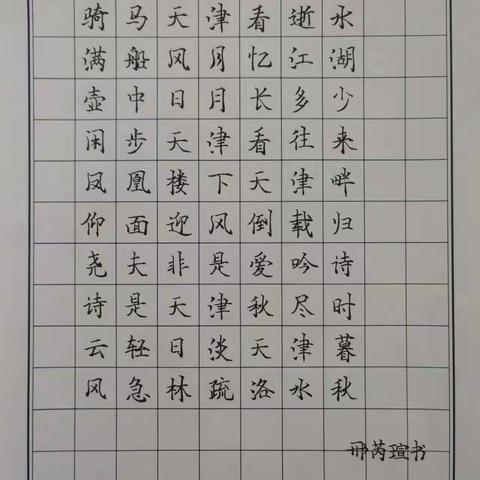 骑马天津看逝水
满船风月忆江湖
壶中日月长多少
闲步天津看往来
凤凰楼下天津畔
仰面迎风倒载归
尧夫非是爱吟诗
诗是天津秋尽时
云轻日淡天津暮
风急林疏洛水秋
邢芮瑄书